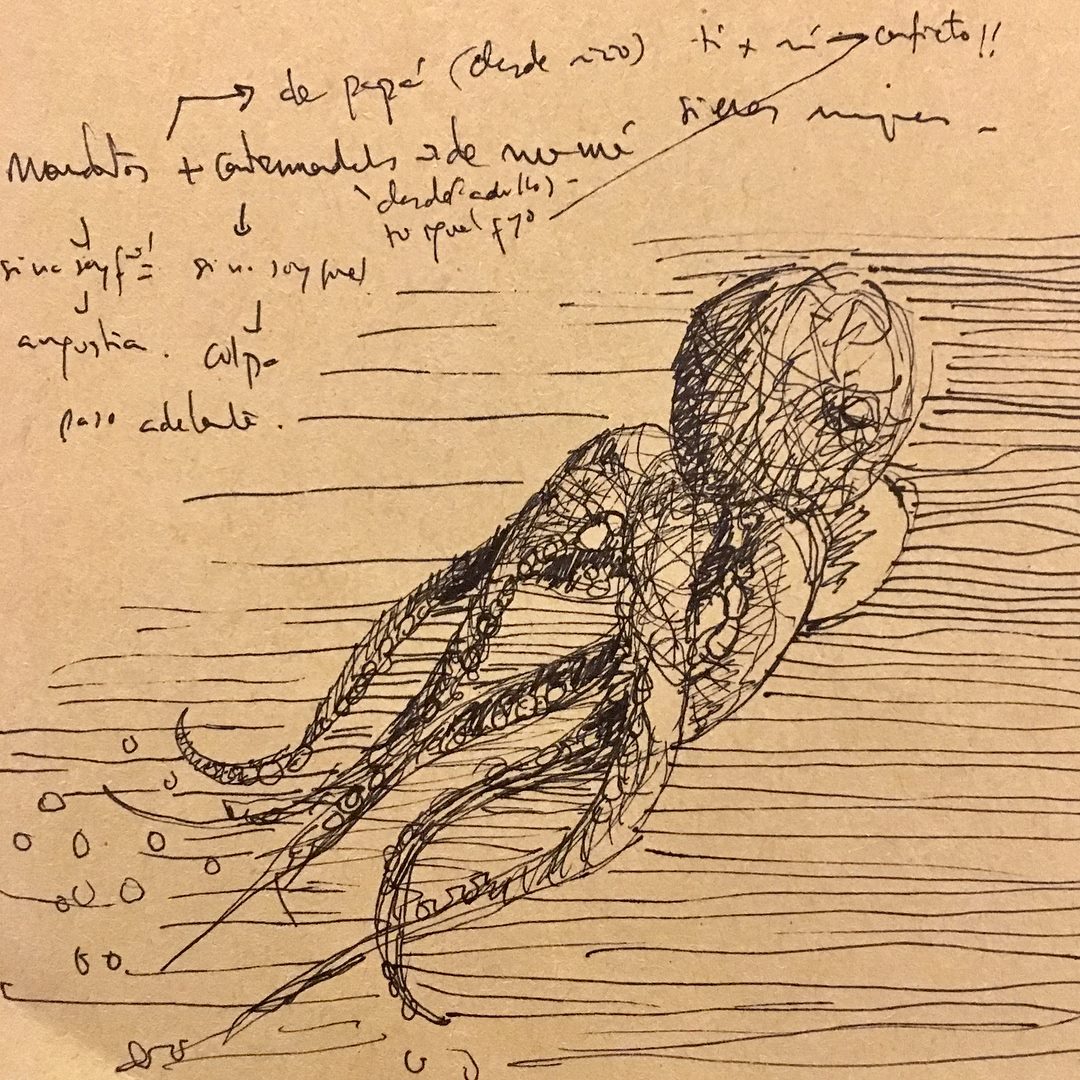 de papá (desde niño) ti + mí → conflicto!!
Mandatos + Contramandatos → de mamá si eres mejor
desde adulto
tu igual q yo
si no soy si no soy fuel
angustia. Culpa
paso adelante.